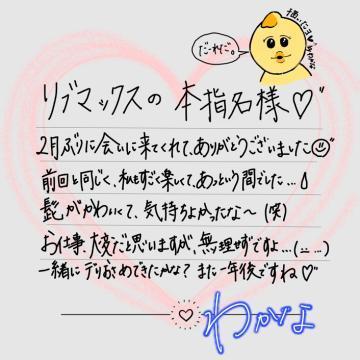 描いたヨ♥ わかな
だーれだ。
リブマックスの 本指名様♡
2月ぶりに会いに来てくれて、ありがとうございました☺
前回と同じく、私もすごく楽しくて、あっという間でした…💧
髭がかわいくて、気持ちよかったな〜(笑)
お仕事、大変だと思いますが、無理せずですよ…(ー_ー)
一緒にデリおさめできたかな? また一年後ですね♡
わかな